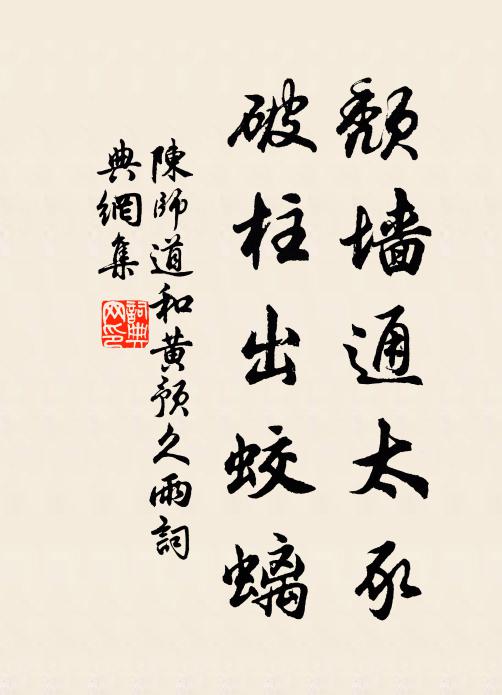 頹墙通太豕
破柱出蛟螭
陳師道和黃預久雨詞
典網集
詞典
网印